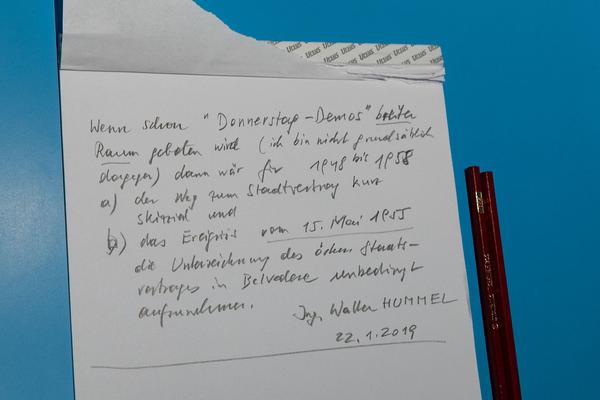 Utax Utax Utax Utax
Wenn schon "Donnerstags-Demos" breiter
Raum geboten wird (ich bin nicht grundsätzlich
dagegen) dann wär für 1948 bis 1958
a) der Weg zum Stadtvertrag kurz
skizziert und
b) das Ereignis vom 15. Mai 1955
die Unterzeichnung des österr. Staats-
vertrages in Belvedere unbedingt
aufzunehmen.
Ing. Walter HUMMEL
22.1.2019